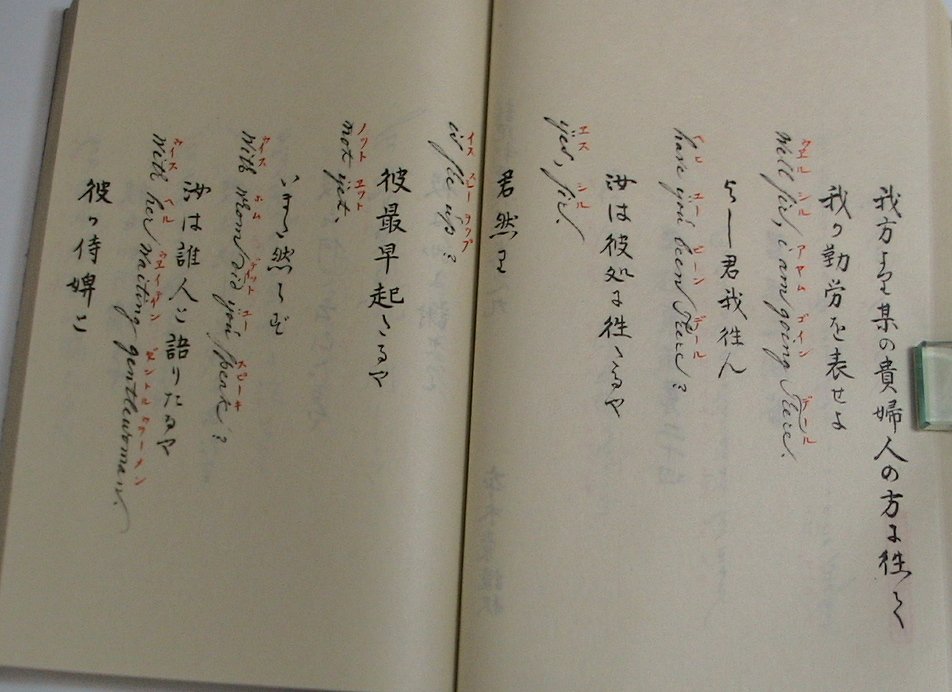 我方 某の貴婦人の方に往く
我カ勤労を表せよ
ウエル シル アヤム ゴイン デール
Well sir, i am going there.
よし君我往ん
ユー ビーン デール
have you been there?
汝は彼処に往きたるや
エス シル
yes, sir.
君然り
イス スヒー ヲップ
is she up?
彼最早起きたるや
ノット エット
not yet.
いまた然らず
ウイス ホム デイット ユー スピーキ
With whom did you speak?
汝は誰人と語りたるや
ウイス ヘル ウエイチイン ゼントルウーメン
With her waiting gentlewoman.
彼カ侍婢と